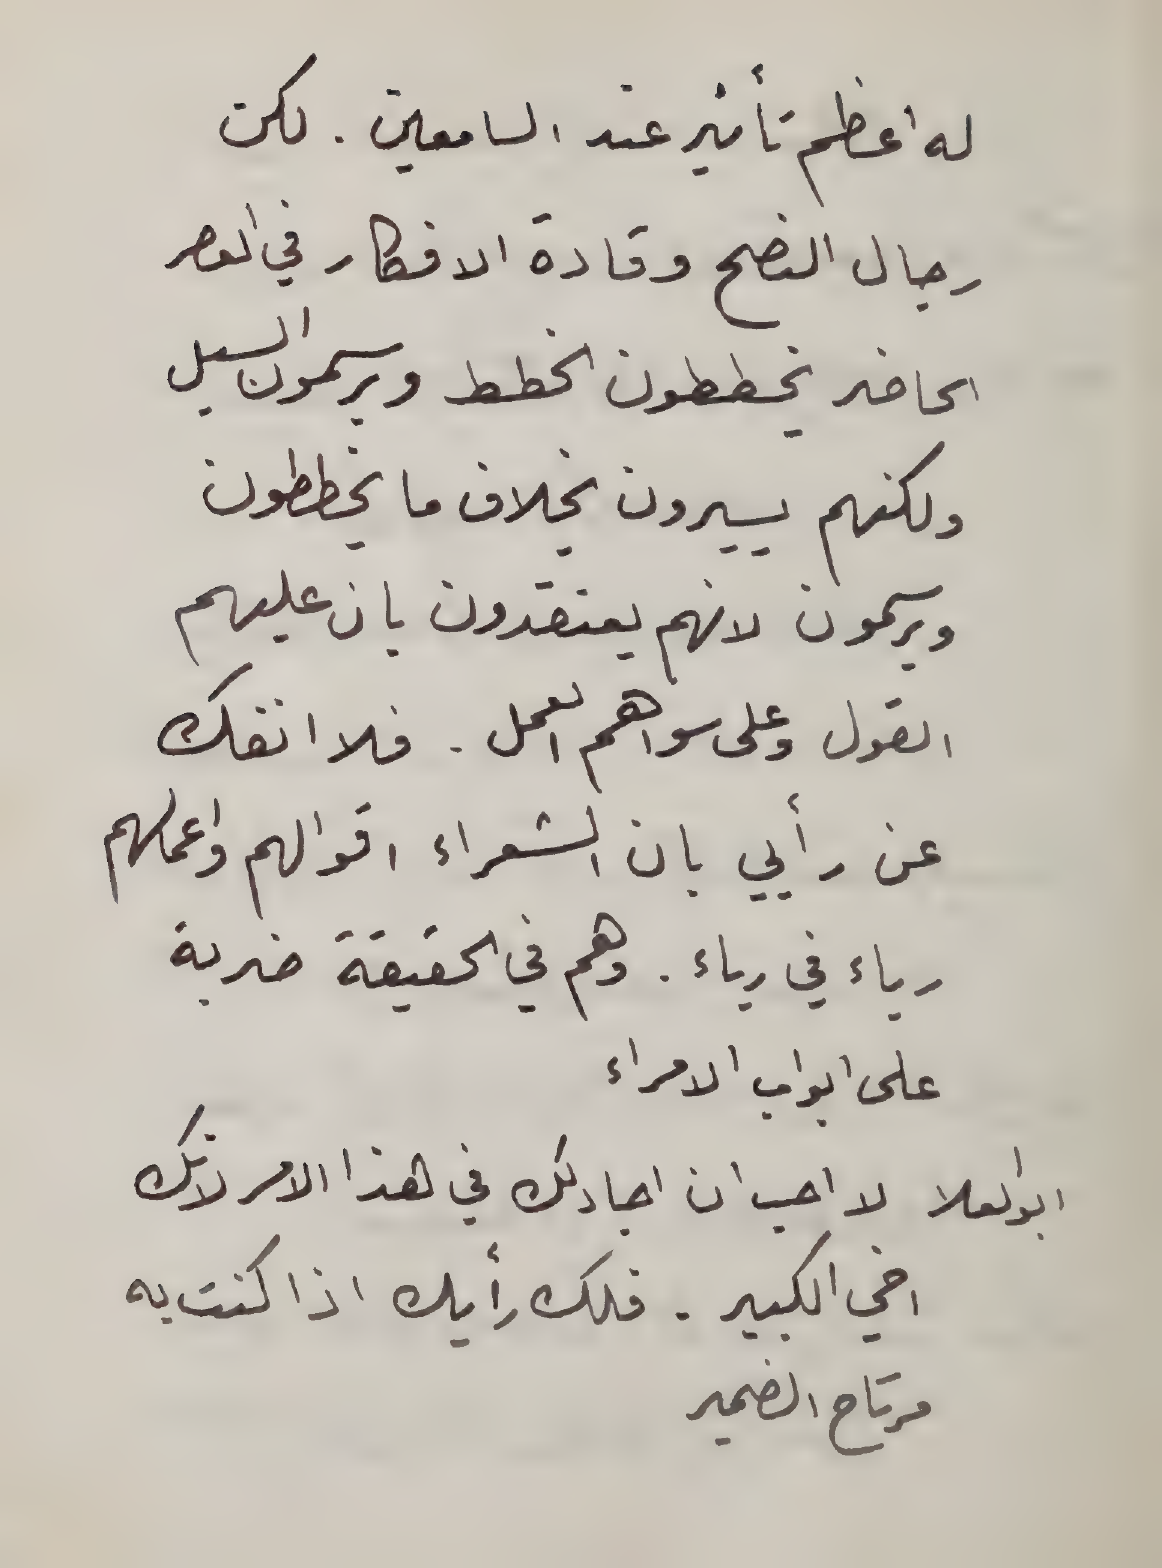 له اعظم تأثير عند السامعين . لكن
رجال النصح وقادة الافكار في العصر
الحاضر يخططون الخطط ويرسمون السبل
ولكنهم يسيرون بخلاف ما يخططون
ويرسمون لانهم يعتقدون بان عليهم
القول وعلى سواهم العمل . فلا انفك
عن رأيي بان الشعراء اقوالهم واعمالهم
رياء في رياء . وهم في الحقيقة ضربة
على ابواب الامراء
ابو العلا لا احب ان اجادلك في هذا الامر لانك
اخي الكبير . فلك رأيك اذا كنت به
مرتاح الضمير